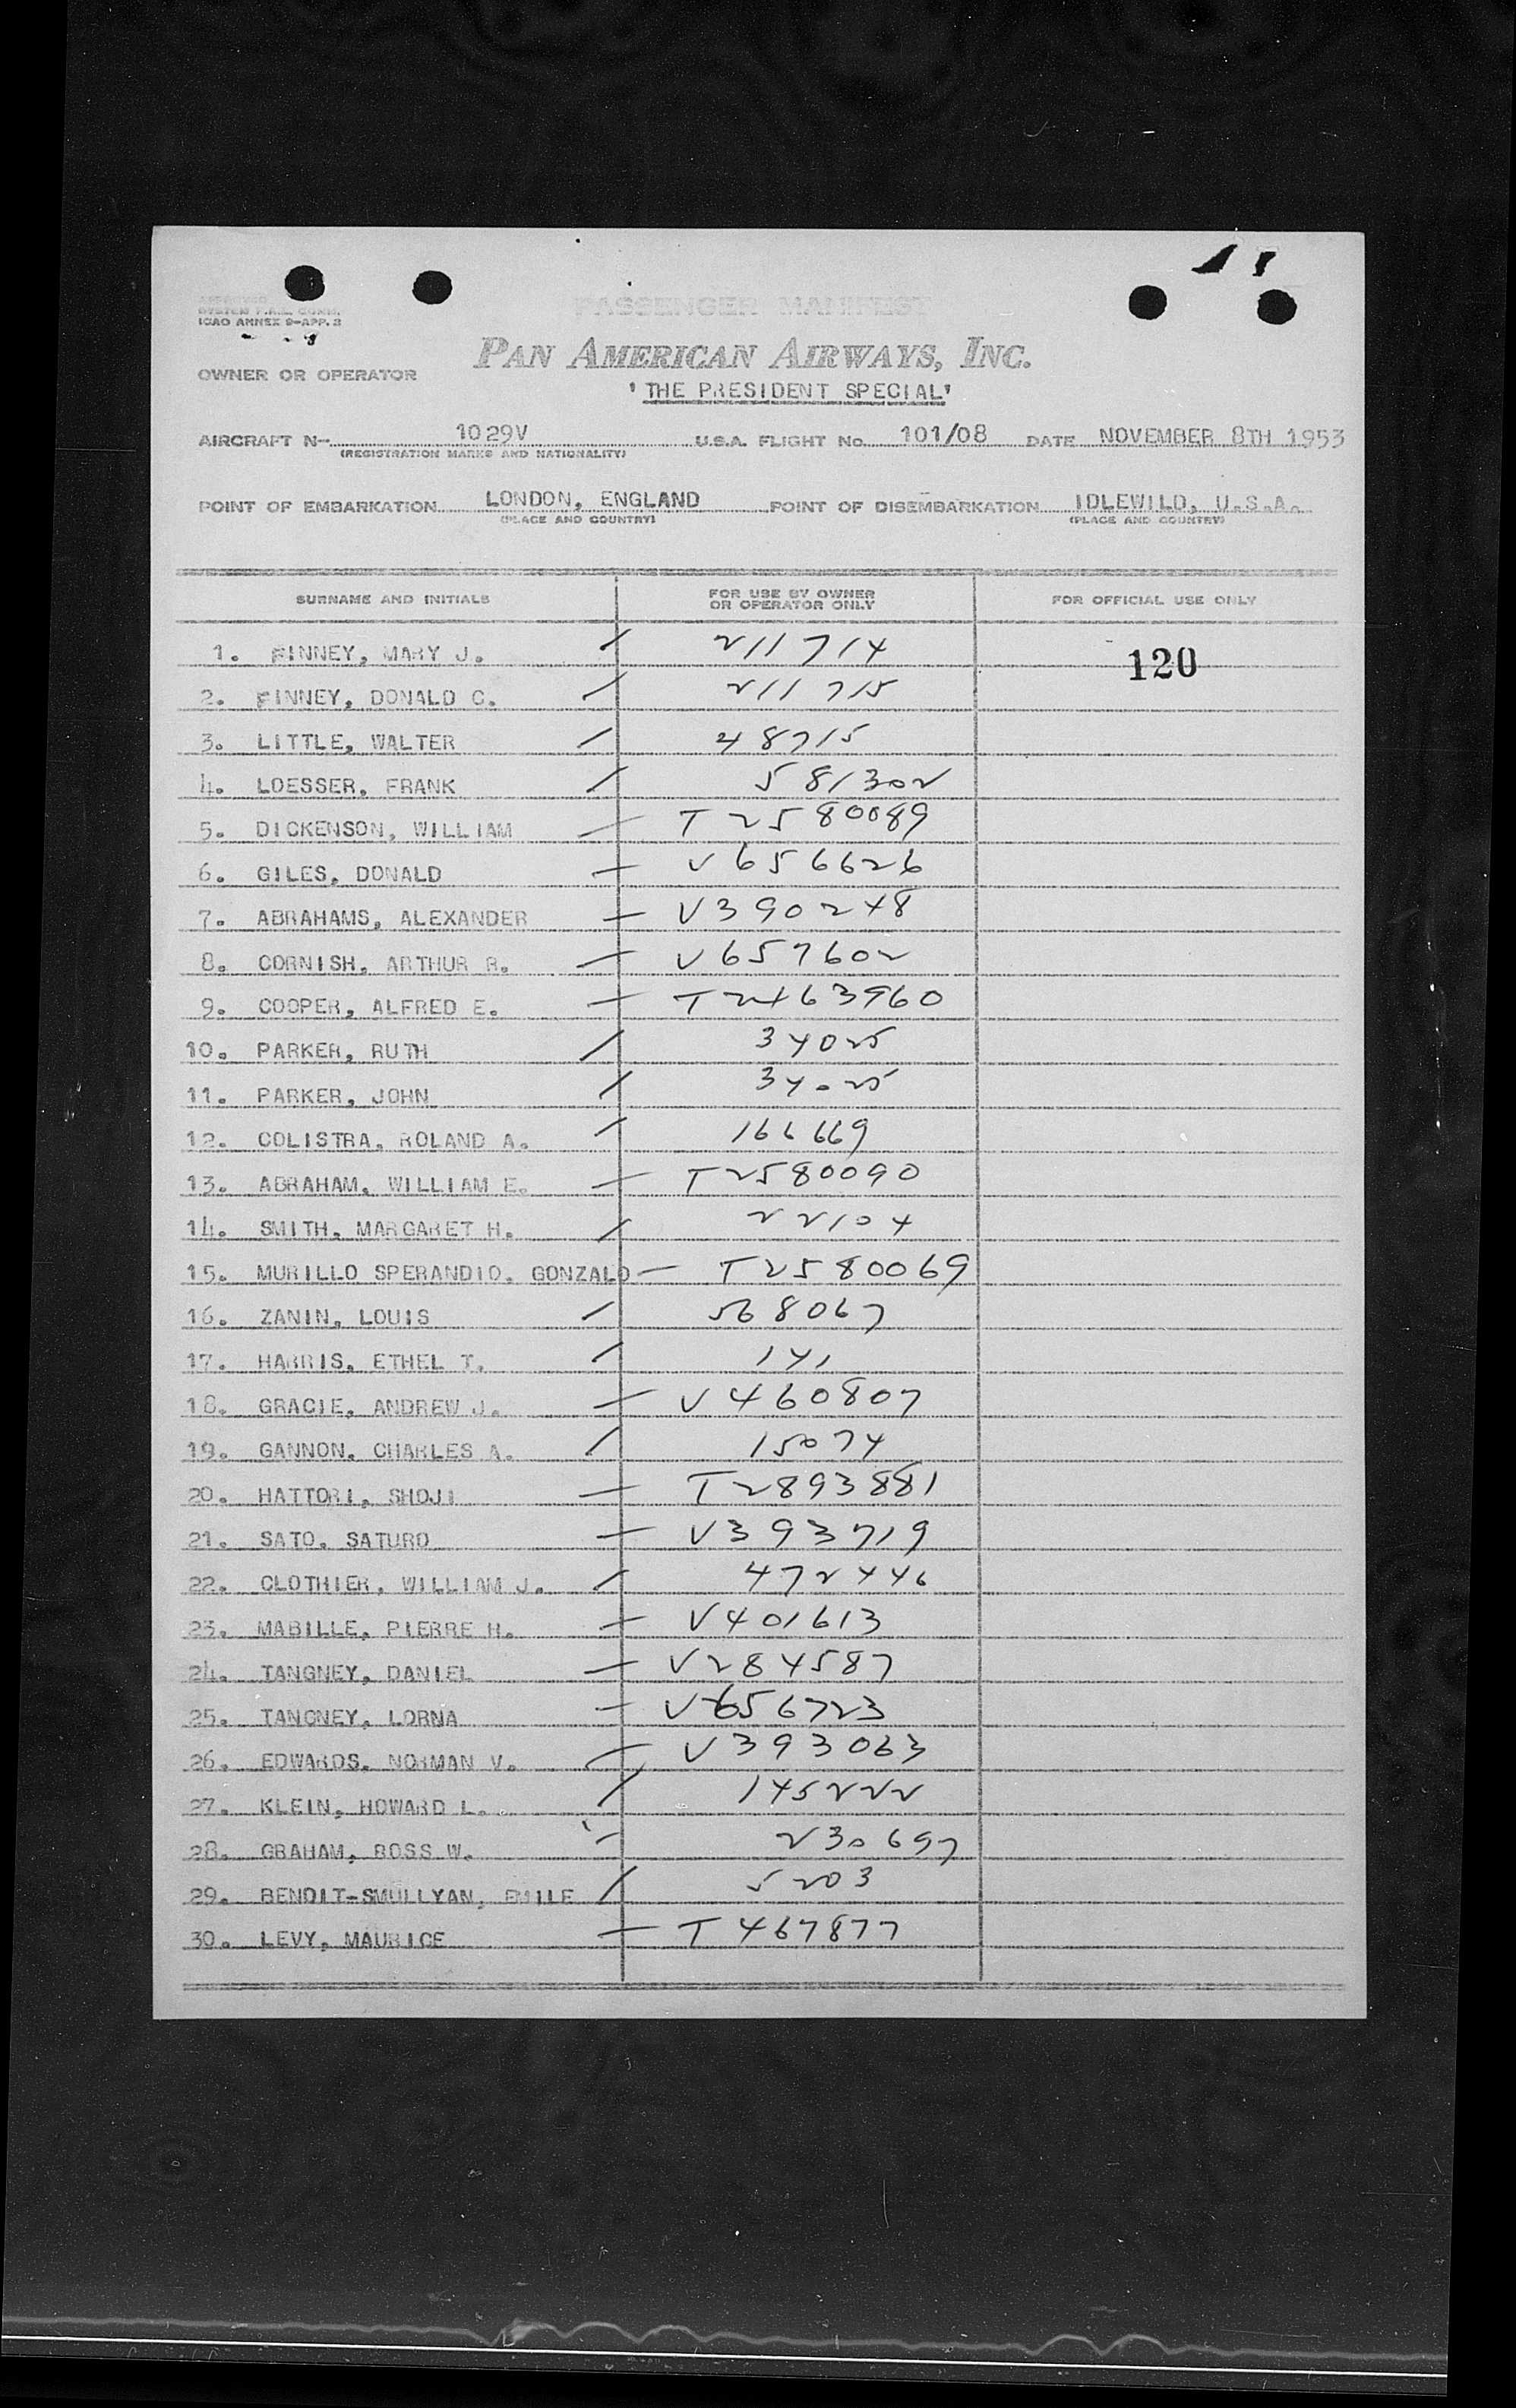 APPROVED
SYSTEM F.A.L. COMM.
ICAO ANNEX 9-APP. 3
PASSENGER MANIFEST
PAN AMERICAN AIRWAYS, INC.
OWNER OR OPERATOR
'THE PRESIDENT SPECIAL'
AIRCRAFT N- 1029V U.S.A. FLIGHT No. 101/08 DATE NOVEMBER 8TH 1953
(REGISTRATION MARKS AND NATIONALITY)
POINT OF EMBARKATION LONDON, ENGLAND POINT OF DISEMBARKATION IDLEWILD, U.S.A.
(PLACE AND COUNTRY) (PLACE AND COUNTRY)
SURNAME AND INITIALS FOR USE BY OWNER OR OPERATOR ONLY FOR OFFICIAL USE ONLY
1. FINNEY, MARY J. / 211714 120
2. FINNEY, DONALD C. / 211715
3. LITTLE, WALTER / 48715
4. LOESSER, FRANK / 581302
5. DICKENSON, WILLIAM — T2580089
6. GILES, DONALD — V656626
7. ABRAHAMS, ALEXANDER — V390248
8. CORNISH, ARTHUR R. — V657602
9. COOPER, ALFRED E. — T2463960
10. PARKER, RUTH / 34025
11. PARKER, JOHN / 34025
12. COLISTRA, ROLAND A. / 166669
13. ABRAHAM, WILLIAM E. — T2580090
14. SMITH, MARGARET H. / 22104
15. MURILLO SPERANDIO, GONZALO — T2580069
16. ZANIN, LOUIS / 568067
17. HARRIS, ETHEL T. / 141
18. GRACIE, ANDREW J. — V460807
19. GANNON, CHARLES A. / 15074
20. HATTORI, SHOJI — T2893881
21. SATO, SATURO — V393719
22. CLOTHIER, WILLIAM J. / 472446
23. MABILLE, PIERRE H. — V401613
24. TANGNEY, DANIEL — V284587
25. TANGNEY, LORNA — V656723
26. EDWARDS, NORMAN V. — V393063
27. KLEIN, HOWARD L. / 145222
28. GRAHAM, ROSS W. — 230697
29. BENOIT-SMULLYAN, EMILE / 5203
30. LEVY, MAURICE — T467877